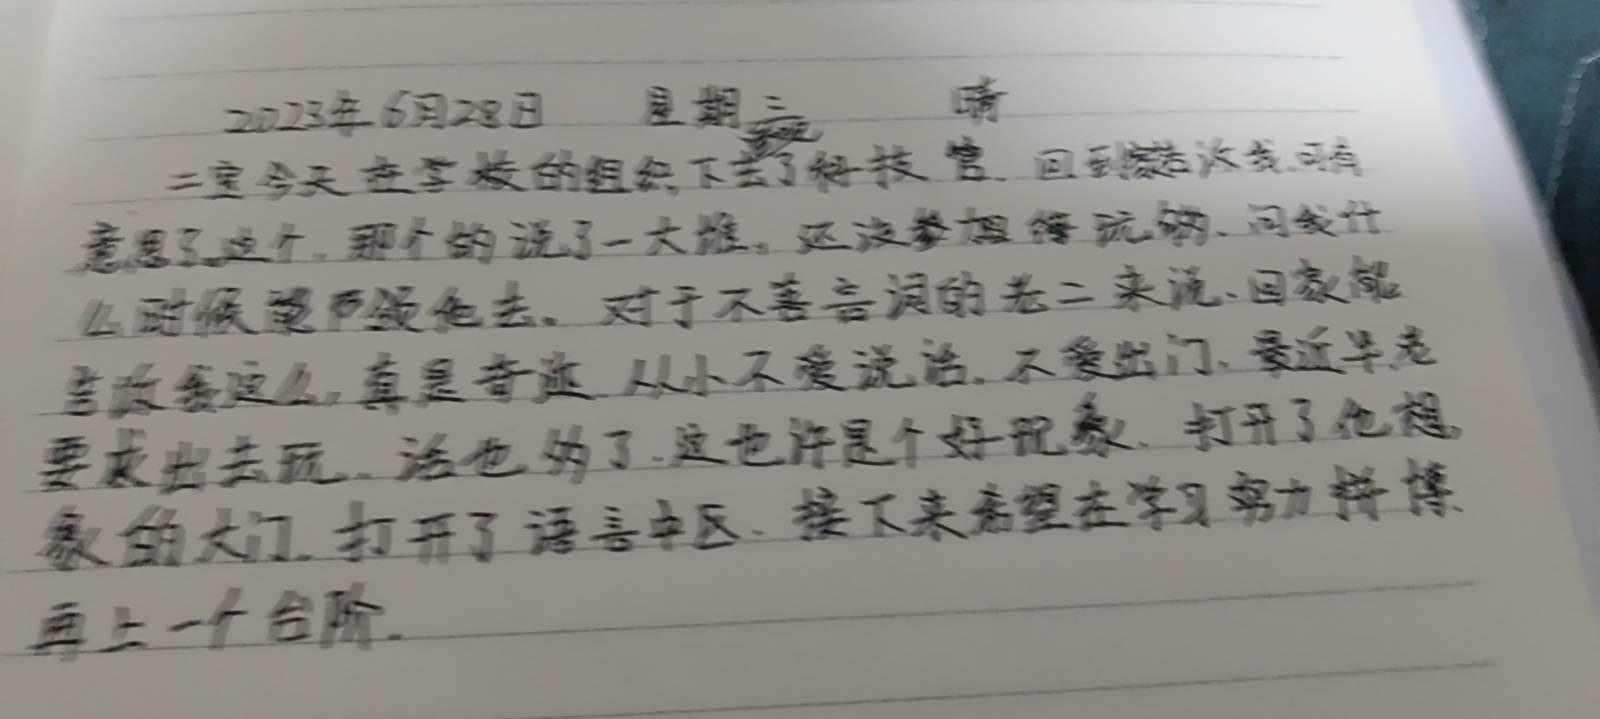 2023年6月28日 星期三 晴
二宝今天在学校的组织下去了科技官、回到家告诉我、可有
意思了、这个、那个的说了一大堆。还没参加够玩够、问我什
么时候领他去。对于不善言词的老二来说、回家能
告诉我这么、真是奇迹、从小不爱说话、不爱出门、最近早老
要求出去玩、话也多了、这也许是个好现象、打开了他想
象的大门、打开了语言中区、接下来希望在学习努力拼博、
再上一个台阶.